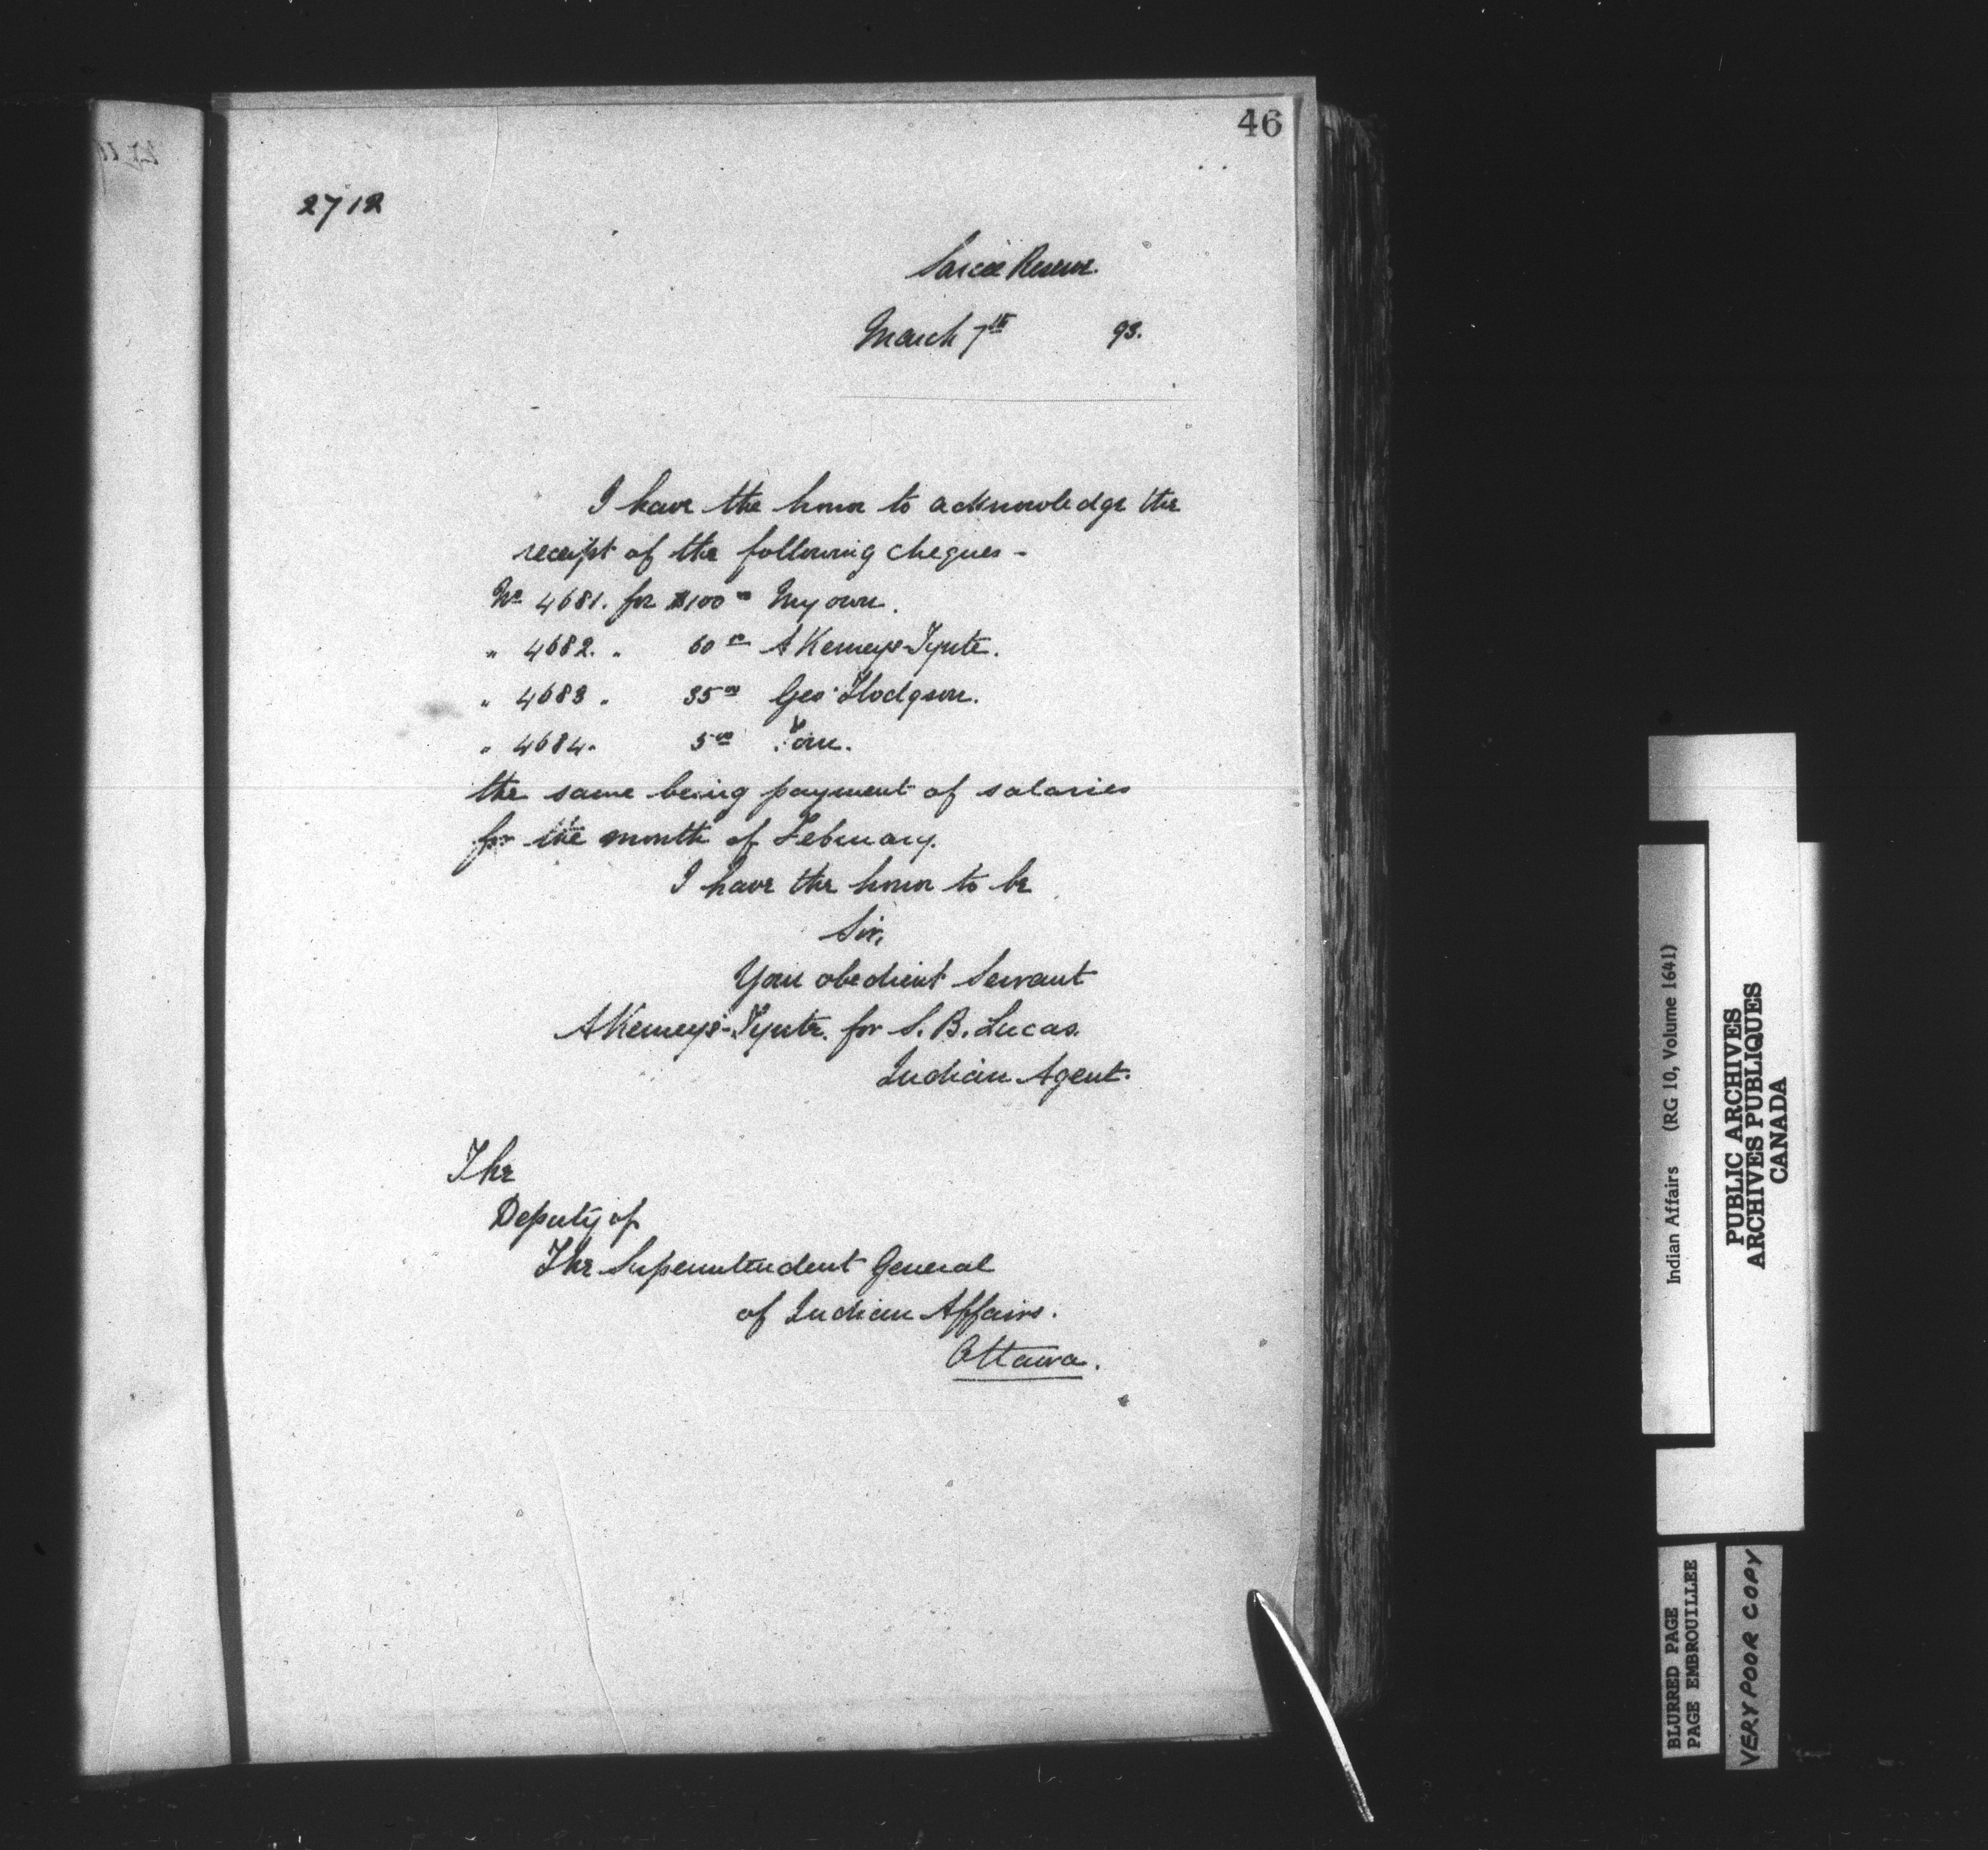 46
2712
Sarcee Reserve.
March 7th 93.
I have the honor to acknowledge the
receipt of the following cheques -
No 4681. for $100 00 My own.
" 4682. " 60 00 A Kemeys-Tynte.
" 4683 " 35 00 Geo Hodgson.
" 4684. 5 00 Tom.
the same being payment of salaries
for the month of February.
I have the honor to be
Sir,
Your obedient Servant
A Kemeys-Tynte. for S. B. Lucas.
Indian Agent.
The
Deputy of
The Superintendent General
of Indian Affairs.
Ottawa.
Indian Affairs (RG 10, Volume 1641)
PUBLIC ARCHIVES
ARCHIVES PUBLIQUES
CANADA
BLURRED PAGE
PAGE EMBROUILLEE
VERY POOR COPY